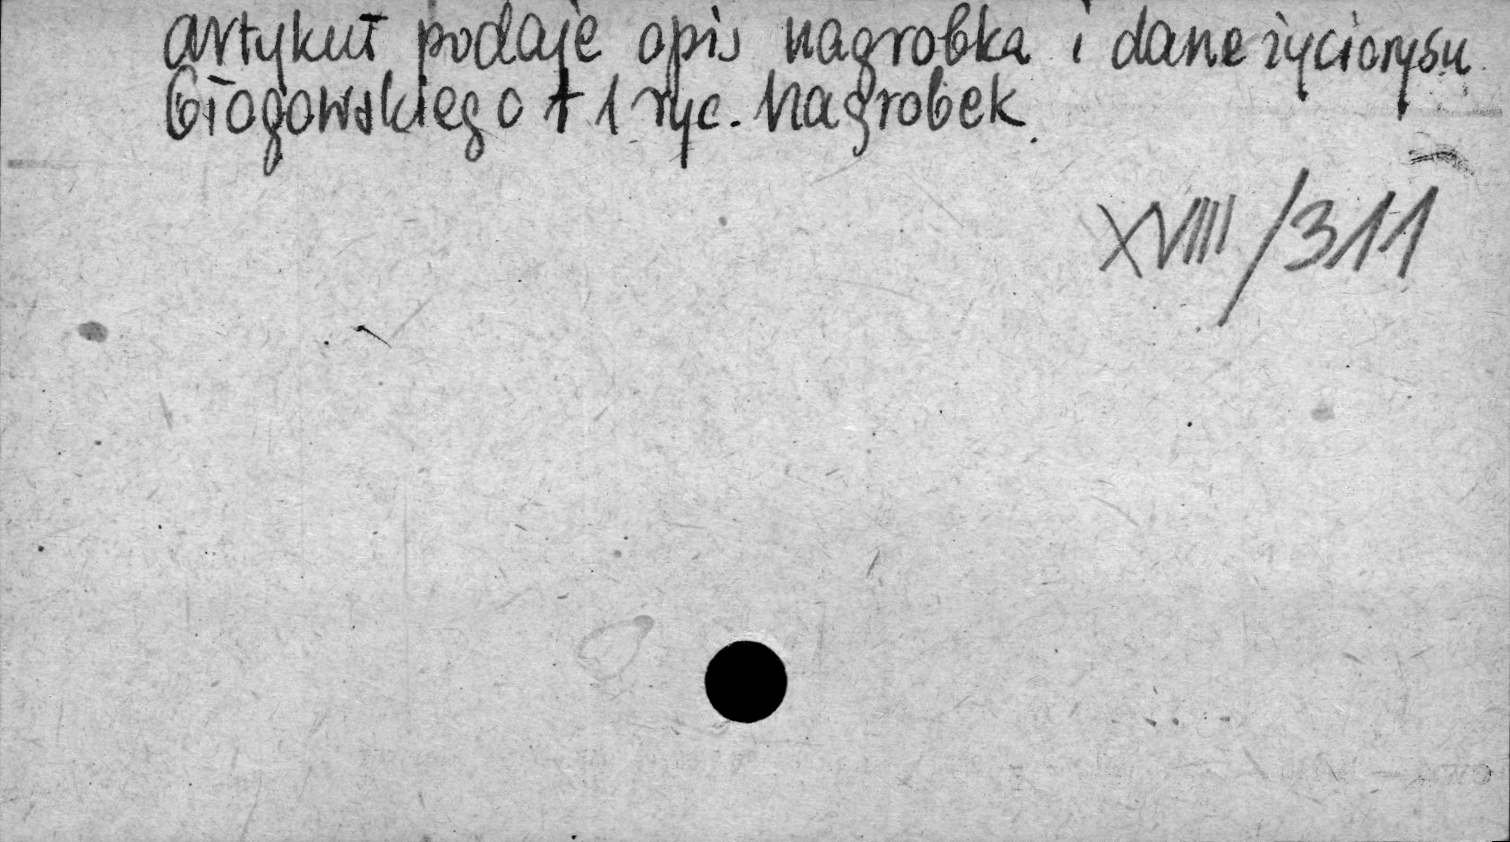 artykuł podaje opis nagrobka i dane życiorysu
Głogowskiego + 1 ryc. Nagrobek.
XVIIII/311